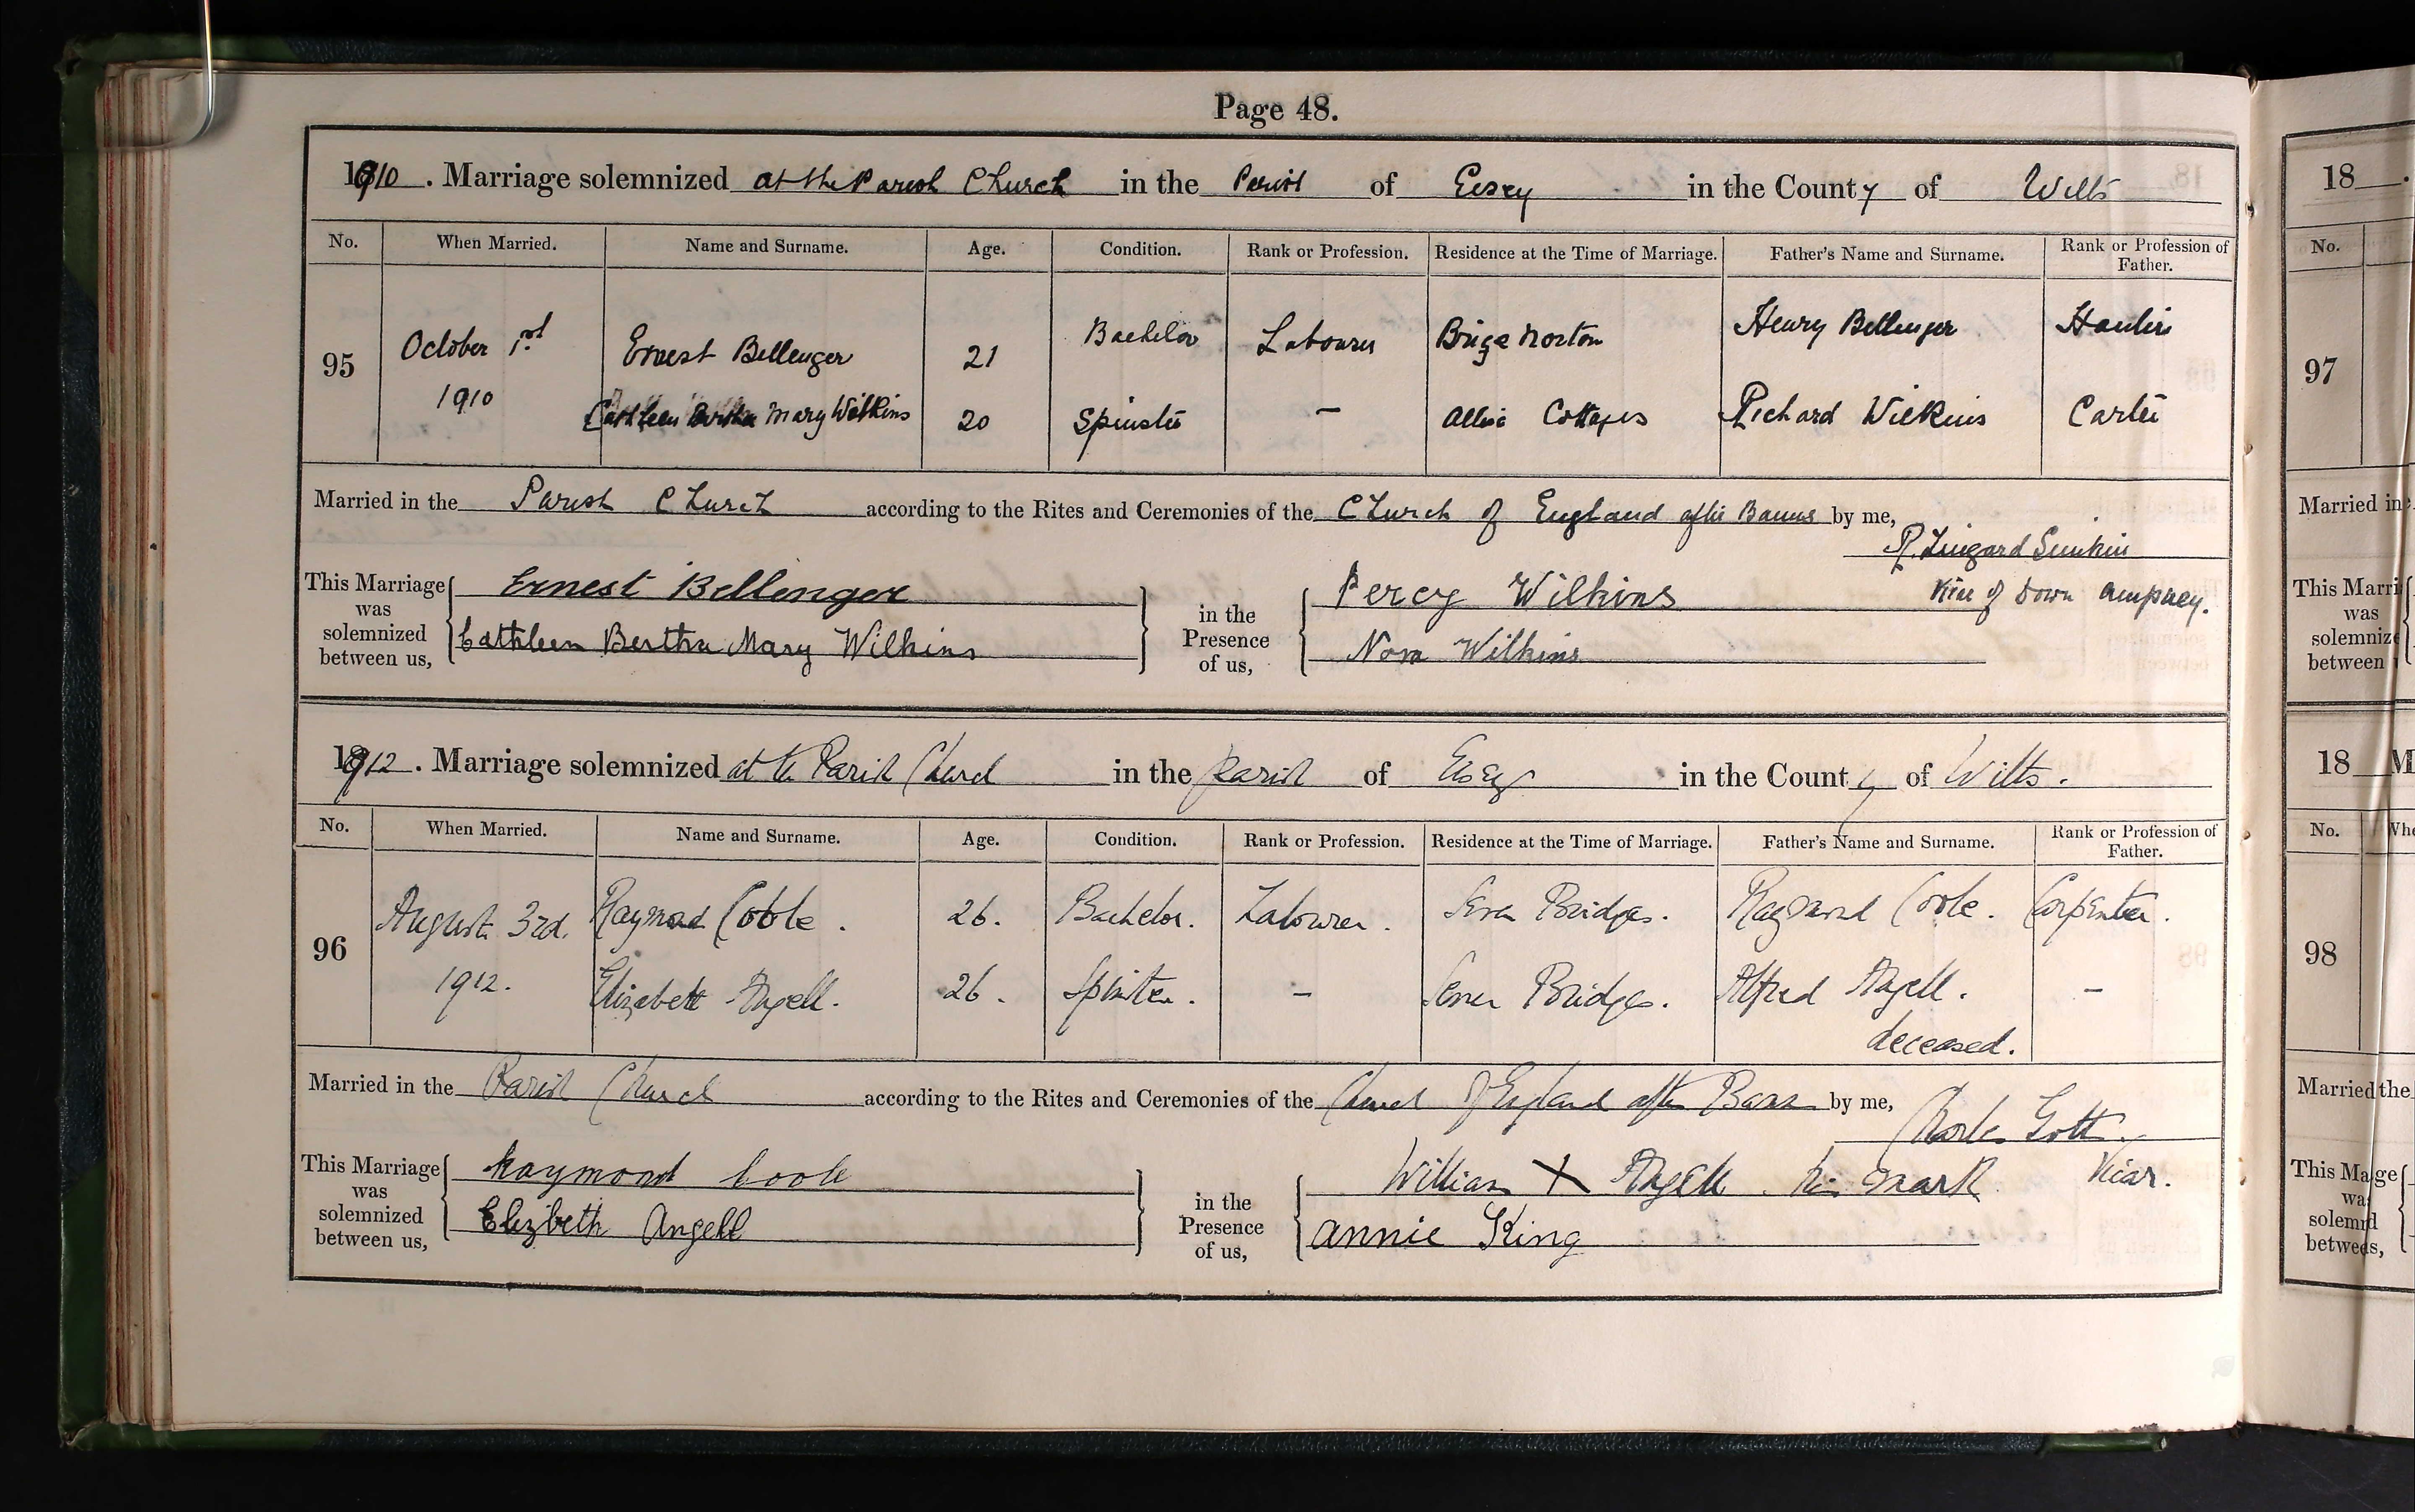 Page 48.
1910. Marriage solemnized at the Parish Church in the Parish of Eisey in the County of Wilts
No. When Married. Name and Surname. Age. Condition. Rank or Profession. Residence at the Time of Marriage. Father's Name and Surname. Rank or Profession of Father.
95 October 1st 1910
Ernest Bellenger 21 Bachelor Labourer Brize Norton Henry Bellenger Haulier
Cathleen Bertha Mary Wilkins 20 Spinster – Cottages Richard Wilkins Carter
Married in the Parish Church according to the Rites and Ceremonies of the Church of England after Banns by me,
R. Lingard Simkin
Vicar of Down Ampney.
This Marriage was solemnized between us, Ernest Bellenger in the Presence of us, Percy Wilkins
Cathleen Bertha Mary Wilkins Nora Wilkins
1912. Marriage solemnized at the Parish Church in the Parish of Eisey in the County of Wilts.
No. When Married. Name and Surname. Age. Condition. Rank or Profession. Residence at the Time of Marriage. Father's Name and Surname. Rank or Profession of Father.
96 August 3rd. 1912.
Raymond Coole. 26. Bachelor. Labourer. Seven Bridges. Raymond Coole. Carpenter.
Elizabeth Angell. 26. Spinster. – Seven Bridges. Alfred Angell. –
deceased.
Married in the Parish Church according to the Rites and Ceremonies of the Church of England after Banns by me,
Charles Gott.
Vicar.
This Marriage was solemnized between us, Raymond Coole in the Presence of us, William X Angell. his mark
Elizbeth Angell Annie King
18
No.
97
Married in
This Marri
was
solemnize
between
18 M
No. Whe
98
Married the